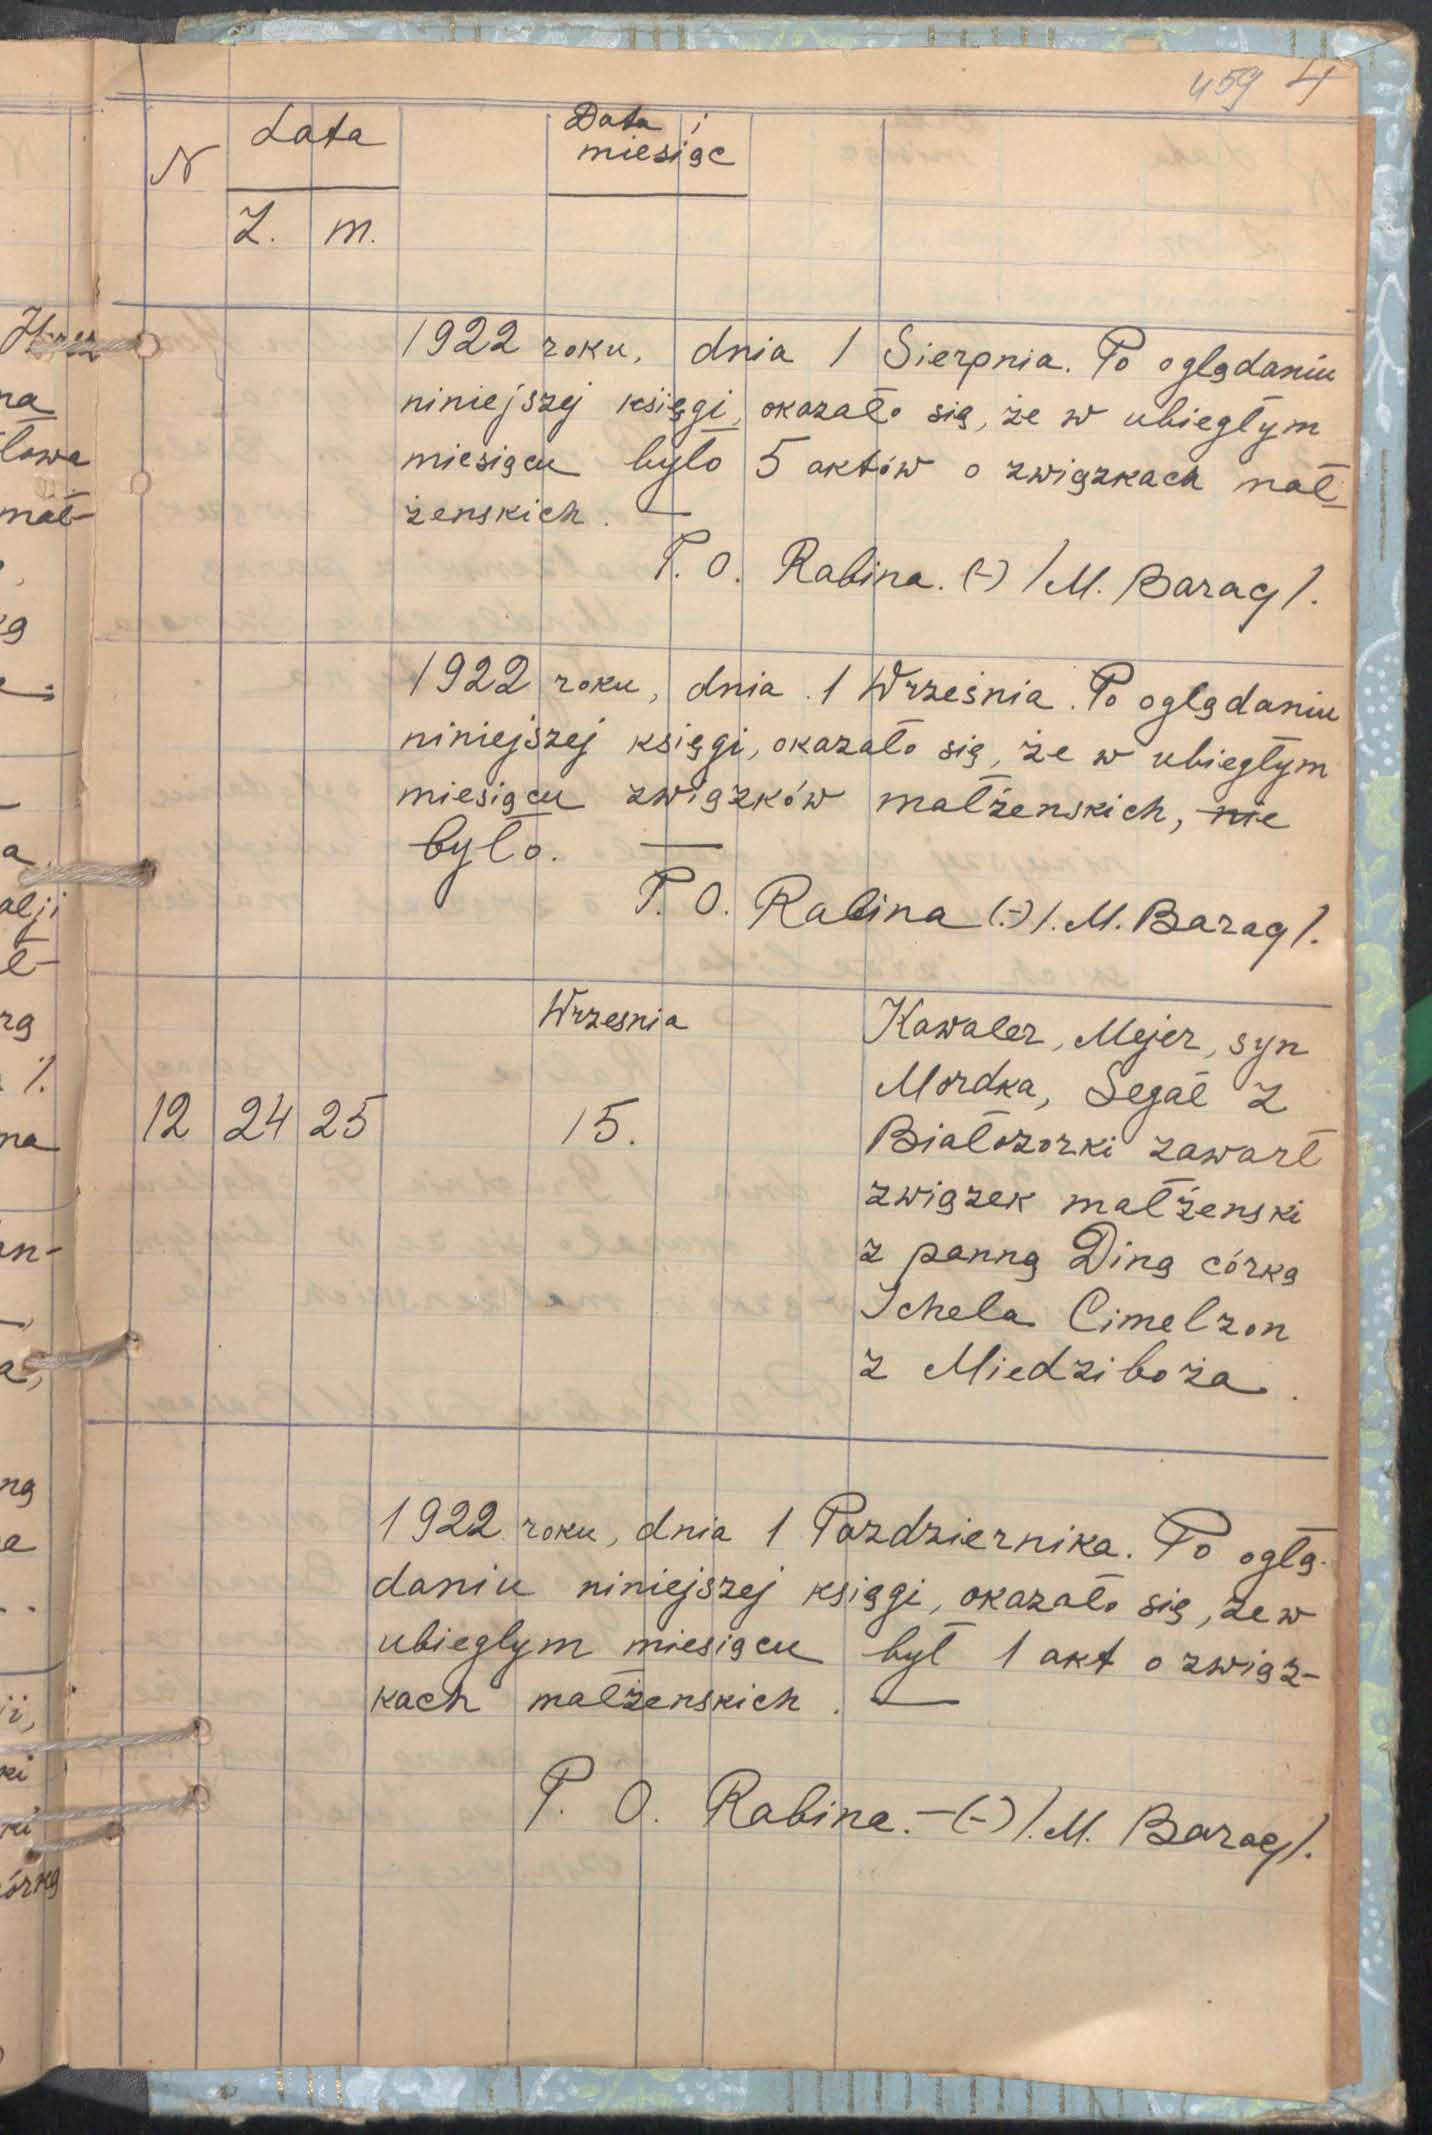 459 4
N Lata Data i
miesiąc
Ż. m.
1922 roku, dnia 1 Sierpnia. Po oglądaniu
niniejszej księgi, okazało się, że w ubiegłym
miesiącu było 5 aktów o związkach mał-
żenskich. —
P. O. Rabina. (-) /M. Barag/.
1922 roku, dnia 1 Września. Po oglądaniu
niniejszej księgi, okazało się, że w ubiegłym
miesiącu związków małżenskich, nie
było. —
P. O. Rabina (-) /. M. Barag/.
Wrzesnia
12 24 25 15.
Kawaler, Mejer, syn
Mordka, Segał z
Białozorki zawarł
związek małżenski
z panną Diną córką
Ichela Cimelzon
z Miedziboża.
1922 roku, dnia 1 Pazdziernika. Po oglą-
daniu niniejszej księgi, okazało się, że w
ubieglym miesiącu był 1 akt o związ-
kach małżenskich. —
P. O. Rabina. — (-) /. M. Barag/.
na
mał-
na
an-
órką